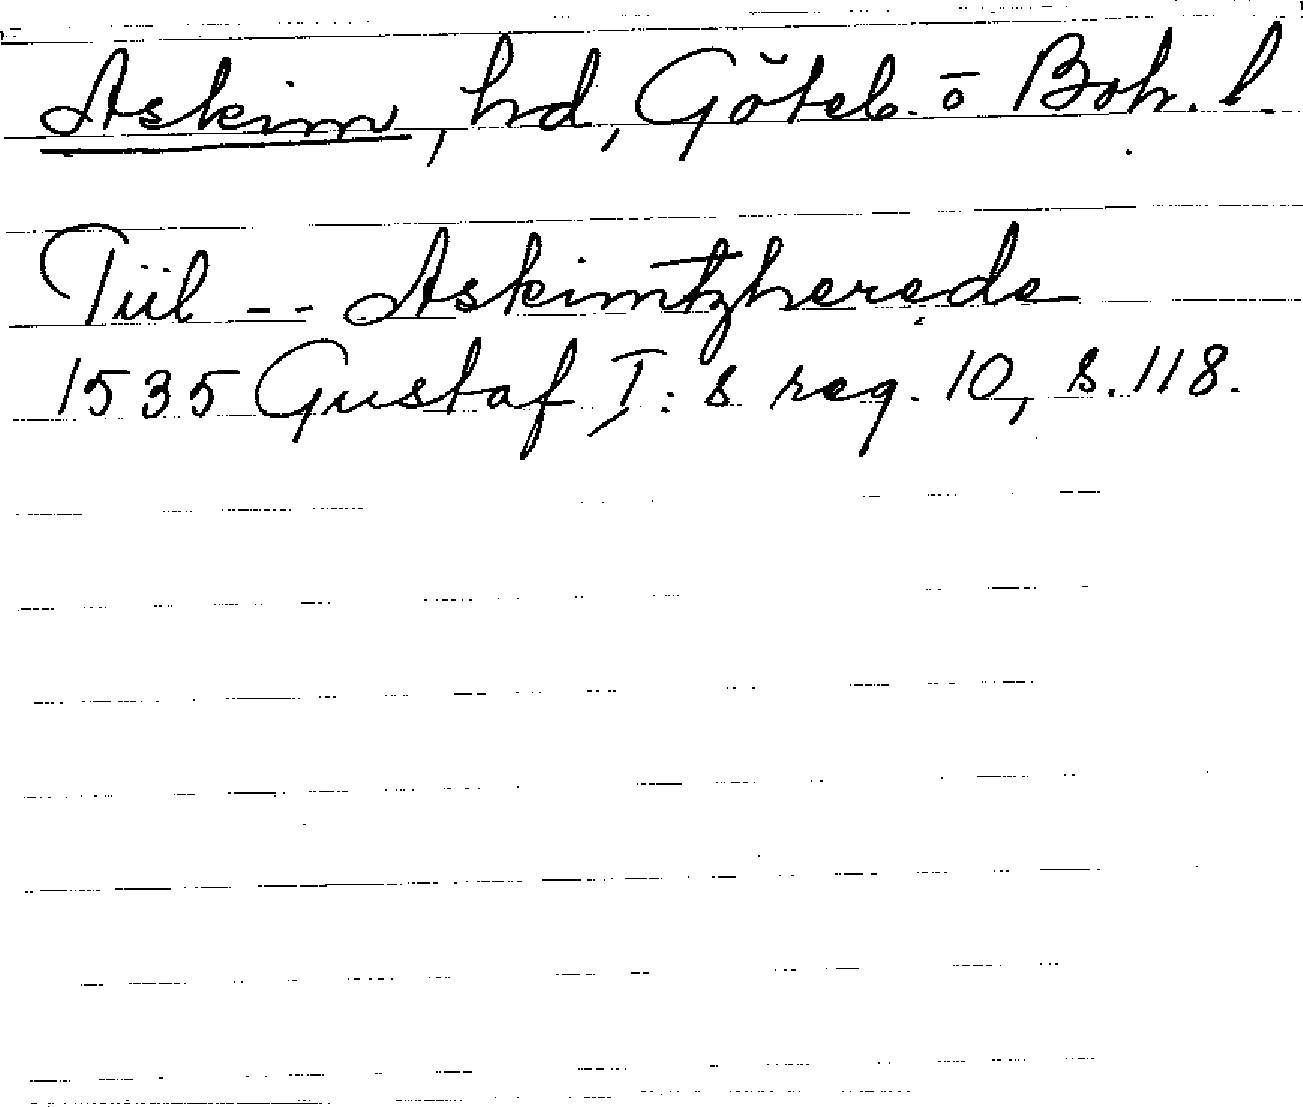 Askim, hd, Göteb. o Boh. l.
Tiil -- Askimtzherede
1535 Gustaf I:s reg. 10, s. 118.